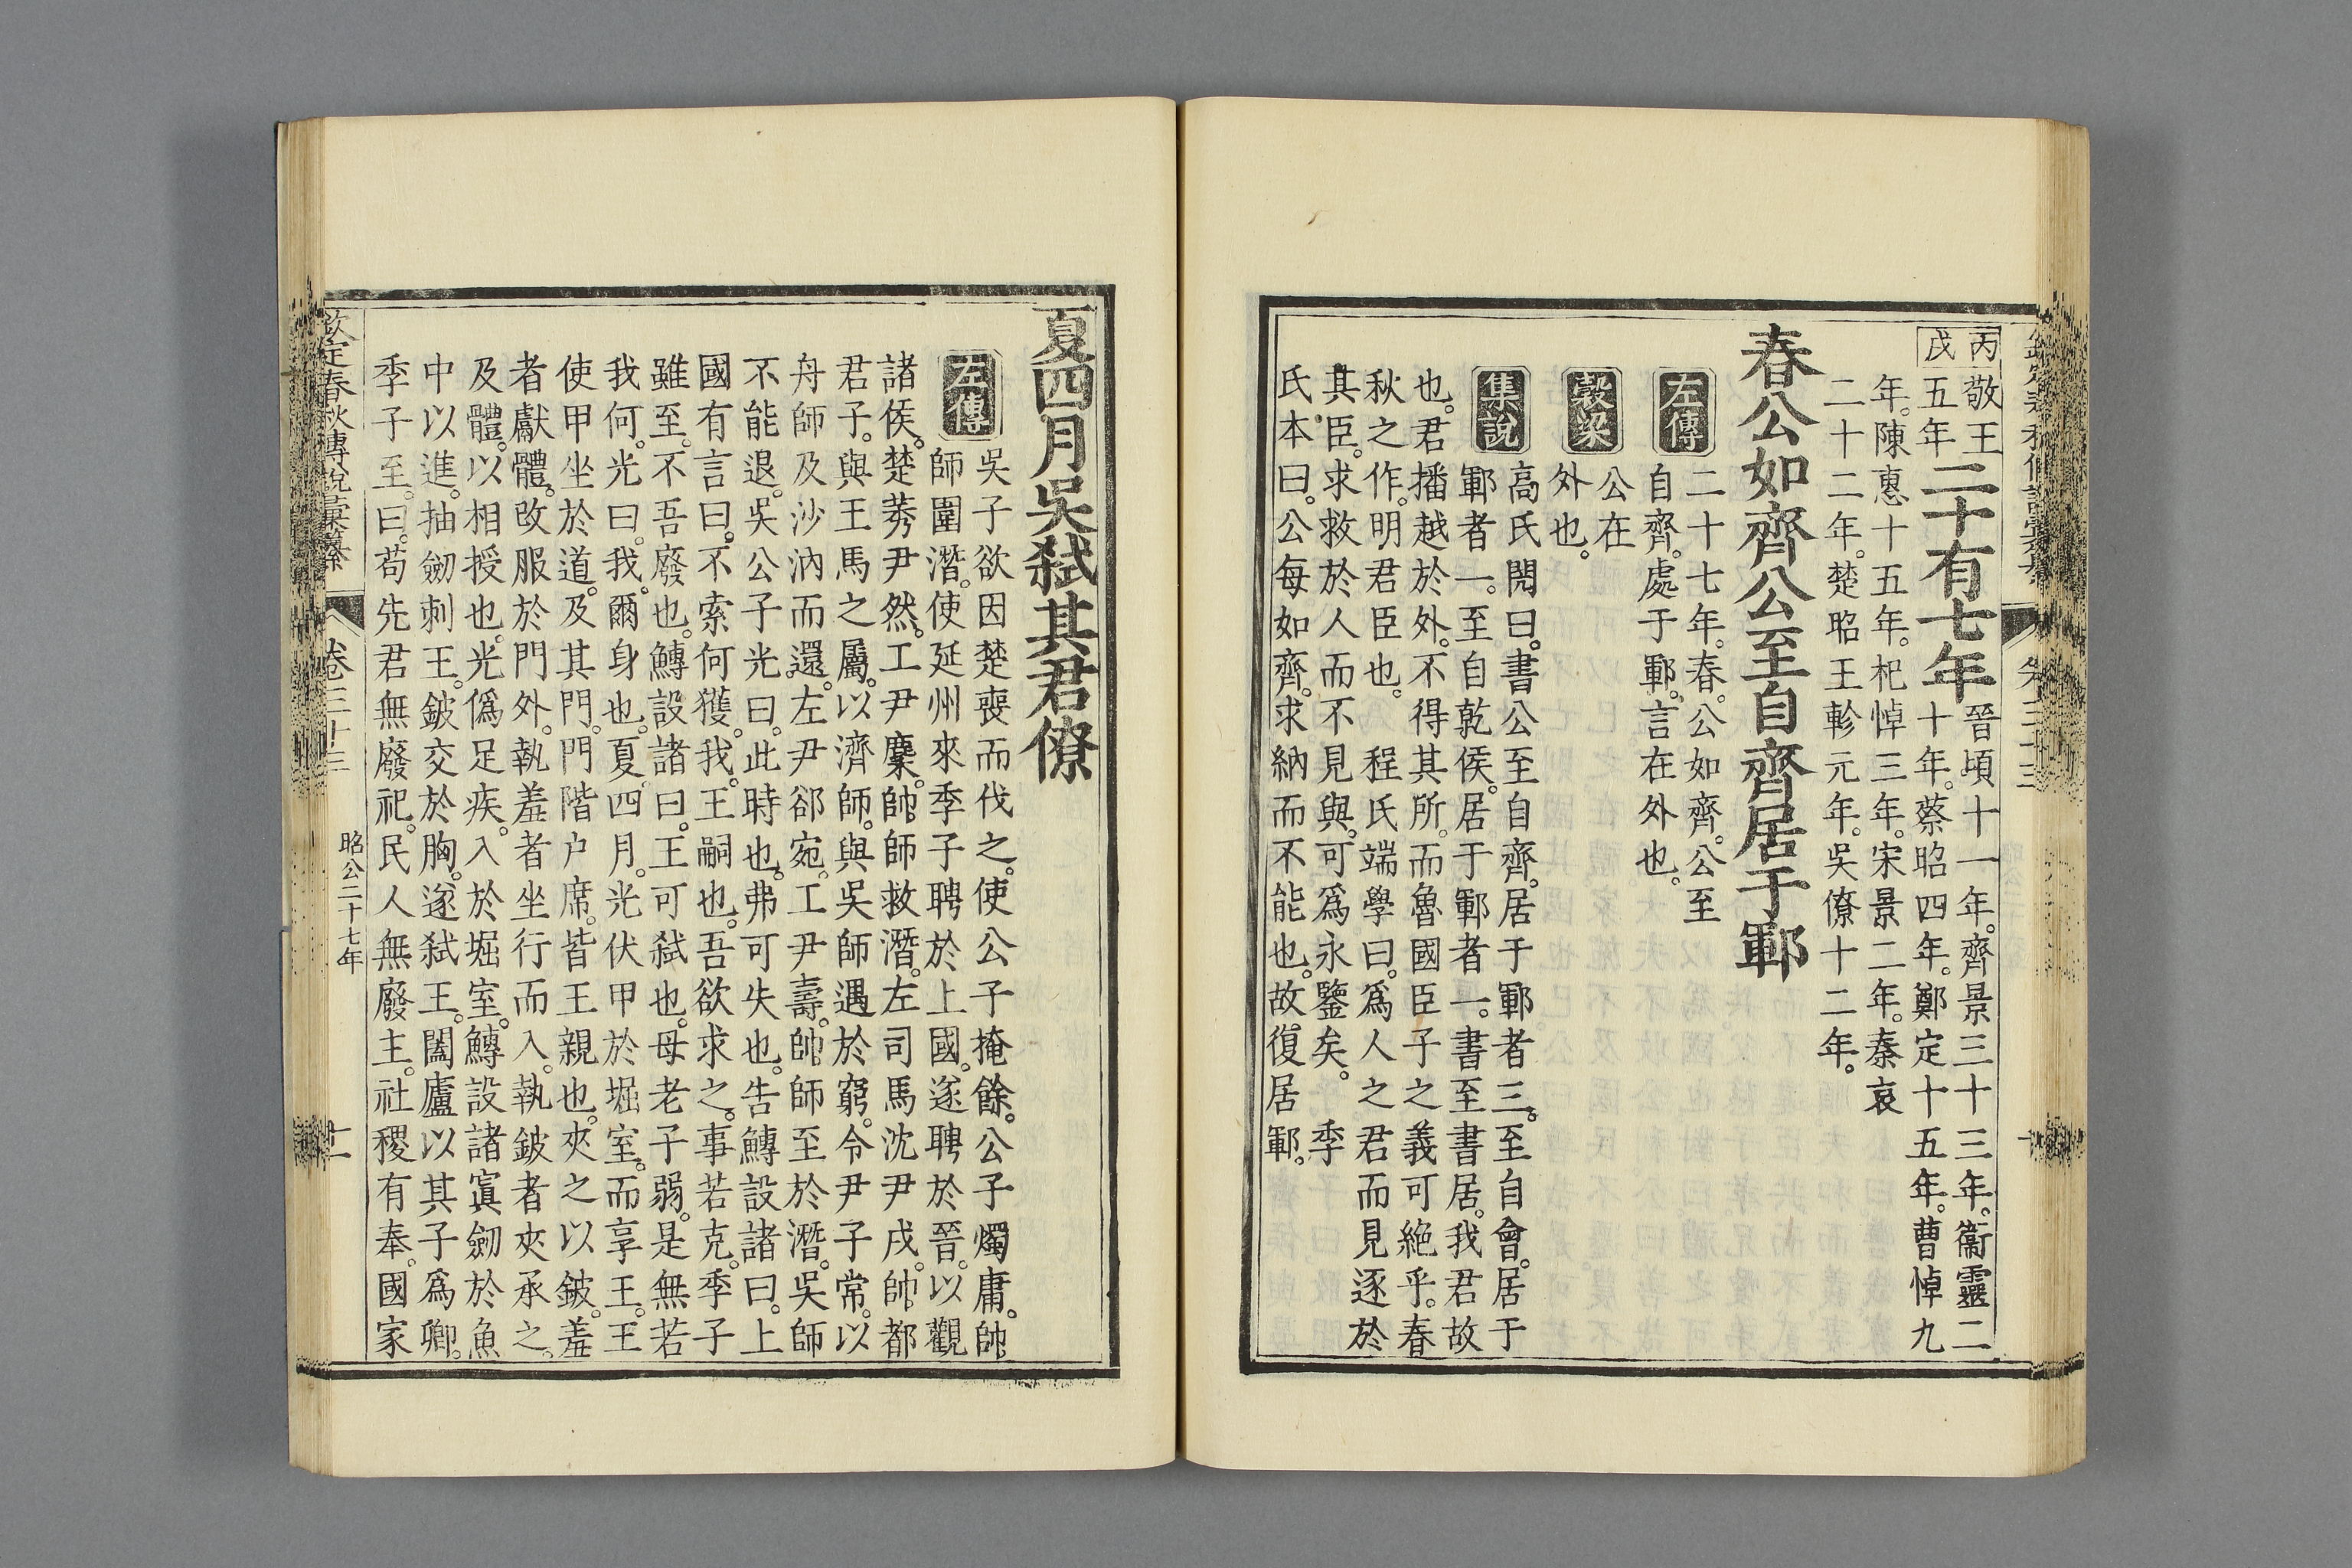 丙戌
敬王五年
二十有七年
晉頃十一年。齊景三十三年。衞靈二
十年。蔡昭四年。鄭定十五年。曹悼九
年。陳惠十五年。杞悼三年。宋景二年。秦哀
二十二年。楚昭王軫元年。吳僚十二年。
春公如齊公至自齊居于鄆
左傳
二十七年。春。公如齊。公至
自齊。處于鄆。言在外也。
穀梁
公在
外也。
集說
高氏閌曰。書公至自齊。居于鄆者三。至自會。居于
鄆者一。至自乾侯。居于鄆者一。書至書居。我君故
也。君播越於外。不得其所。而魯國臣子之義可絶乎。春
秋之作。明君臣也。 程氏端學曰。爲人之君而見逐於
其臣。求救於人而不見與。可爲永鑒矣。 季
氏本曰。公每如齊。求納而不能也。故復居鄆。
夏四月吳弑其君僚
左傳
吳子欲因楚喪而伐之。使公子掩餘。公子燭庸。帥
師圍潛。使延州來季子聘於上國。遂聘於晉。以觀
諸侯。楚莠尹然。工尹麇。帥師救潛。左司馬沈尹戌。帥都
君子。與王馬之屬。以濟師。與吳師遇於窮。令尹子常。以
舟師及沙汭而還。左尹郤宛。工尹壽。帥師至於潛。吳師
不能退。吳公子光曰。此時也。弗可失也。告鱄設諸曰。上
國有言曰。不索何獲。我。王嗣也。吾欲求之。事若克。季子
雖至。不吾廢也。鱄設諸曰。王可弑也。母老子弱。是無若
我何。光曰。我。爾身也。夏。四月。光伏甲於堀室。而享王。王
使甲坐於道。及其門。門階户席。皆王親也。夾之以鈹。羞
者獻體。改服於門外。執羞者坐行而入。執鈹者夾承之。
及體。以相授也。光僞足疾。入於堀室。鱄設諸寘劒於魚
中以進。抽劒刺王。鈹交於胸。遂弑王。闔廬以其子爲卿。
季子至。曰。苟先君無廢祀。民人無廢主。社稷有奉。國家
欽定春秋傳說彙纂
卷三十三
昭公二十七年
十一